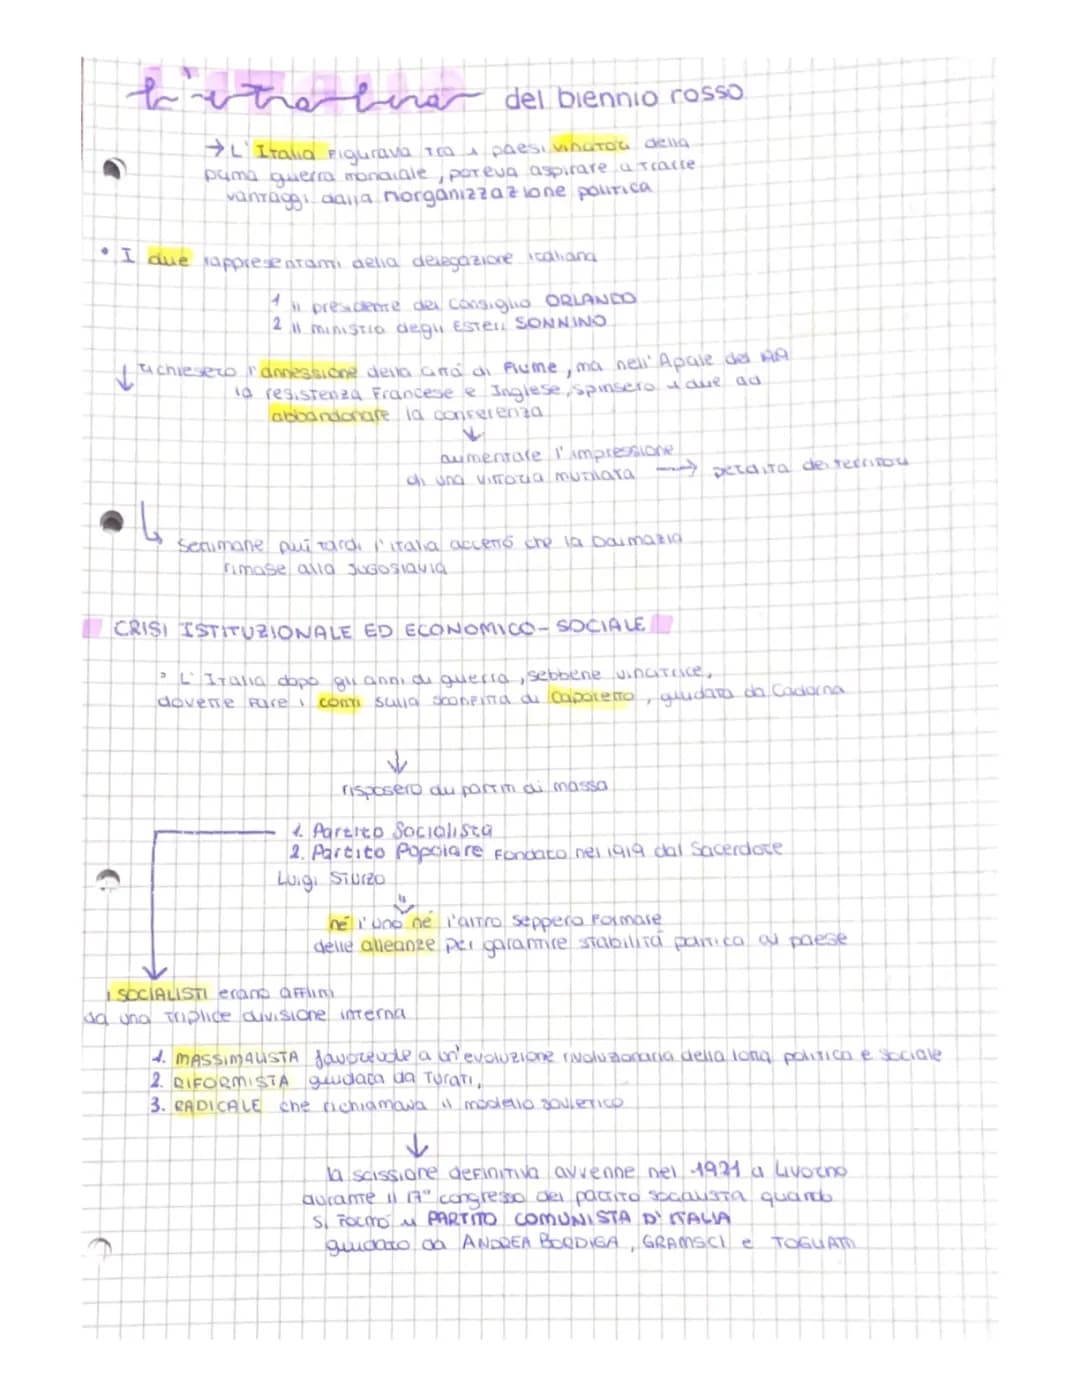 L'italia del biennio rosso
→ L'Italia Figurava Tra i paesi vincitori della
prima guerra mondiale, poteva aspirare a Trarre
vantaggi dalla riorganizzazione politica
• I due rappresentanti della delegazione italiana
1 il presidente del Consiglio ORLANDO
2 Il ministro degli Esteri SONNINO
↓ richiesero l'annessione della città di Fiume, ma nell'Aprile del 19
la resistenza Francese e Inglese, spinsero i due ad
abbandonare la conferenza
↓
aumentare l'impressione
di una vittoria mutilata → perdita dei territori
↳ Settimane piú tardi l'italia accettò che la Dalmazia
rimase alla Jugoslavia
CRISI ISTITUZIONALE ED ECONOMICO-SOCIALE
• L'Italia dopo gli anni di guerra, sebbene vincitrice,
dovette Fare i conti sulla sconfitta di Caporetto, guidata da Cadorna
↓
risposero du partiti di massa
1. Partito Socialista
2. Partito Popolare Fondato nel 1919 dal Sacerdote
Luigi Sturzo
né l'uno né l'altro seppero Formare
delle alleanze per garantire stabilità partica al paese
i SOCIALISTI erano affini
da una Triplice divisione interna
1. MASSIMALISTA favorevole a un'evoluzione rivoluzionaria della lotta politica e sociale
2. RIFORMISTA guidata da Turati,
3. RADICALE che richiamava il modello sovietico
↓
la scissione definitiva avvenne nel 1921 a Livorno
durante il 17° congresso del partito socialista quando
si Formó il PARTITO COMUNISTA D'ITALIA
guidato da ANDREA BORDIGA, GRAMSCI e TOGLIATTI